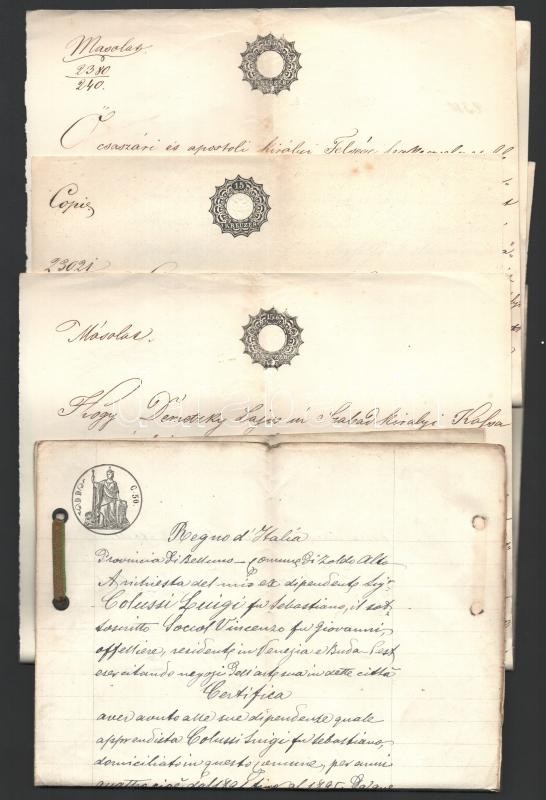 Másolat
2380
240.
15
KREUZER
Ő császári és apostoli királyi Felsége
Copie
15
KREUZER
23021
Másolat.
15
KREUZER
Hogy Lajos úr Szabad királyi Kassa
C. 50.
Regno d'Italia
Provincia di Belluno - Comune di Zoldo Alto
A richiesta del mio ex dipendente Sigr
Colussi Luigi fu Sebastiano, il sot-
toscritto Vincenzo fu Giovanni,
offelliere, residente in Venezia e Buda Pest
esercitando negozi dell'arte sua in dette città
Certifica
aver avuto alle sue dipendenze quale
apprendista Colussi Luigi fu Sebastiano,
domiciliato in questo comune, per anni
quattro cioè dal al 1895